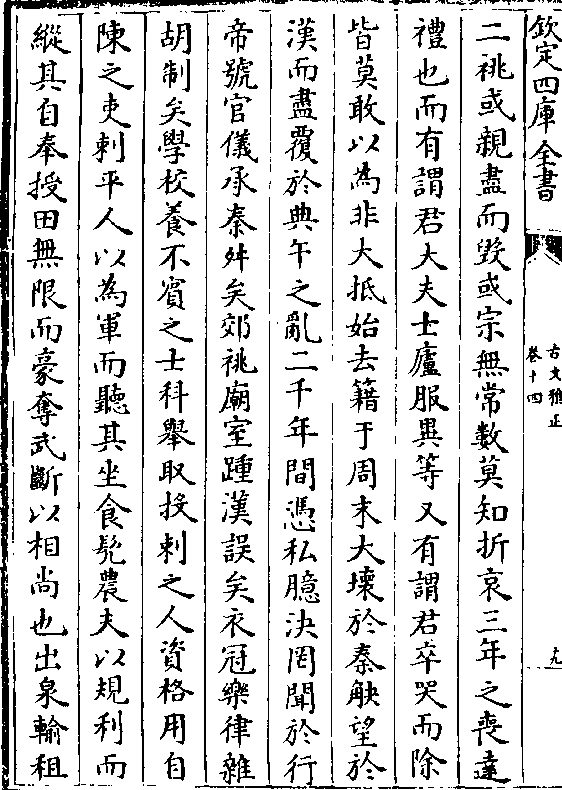 欽定四庫全書
古文雅正
卷十四
十九
二祧或親盡而毀或宗無常數莫知折衷三年之喪達
禮也而有謂君大夫士廬服異等又有謂君卒哭而除
皆莫敢以為非大抵始去籍于周末大壞於秦觖望於
漢而盡覆於典午之亂二千年間憑私臆決罔聞於行
帝號官儀承秦舛矣郊祧廟室踵漢誤矣衣冠樂律雜
胡制矣學校養不賓之士科舉取投刺之人資格用自
陳之吏刺平人以為軍而聽其坐食髡農夫以規利而
縱其自奉授田無限而豪奪武斷以相尚也出泉輸租